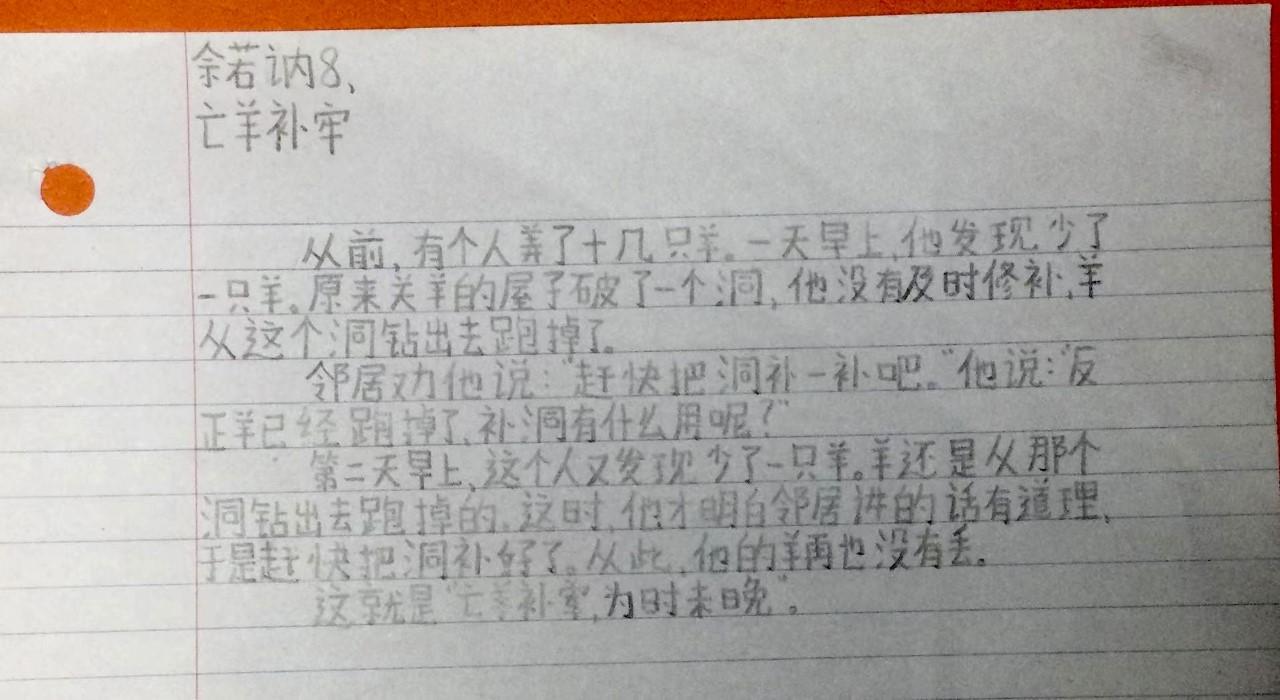 佘若讷8、
亡羊补牢
从前,有个人养了十几只羊。一天早上,他发现少了
一只羊。原来关羊的屋子破了一个洞,他没有及时修补,羊
从这个洞钻出去跑掉了。
邻居劝他说:"赶快把洞补一补吧。"他说:"反
正羊已经跑掉了,补洞有什么用呢?"
第二天早上,这个人又发现少了一只羊。羊还是从那个
洞钻出去跑掉的。这时,他才明白邻居讲的话有道理,
于是赶快把洞补好了。从此,他的羊再也没有丢。
这就是"亡羊补牢,为时未晚"。